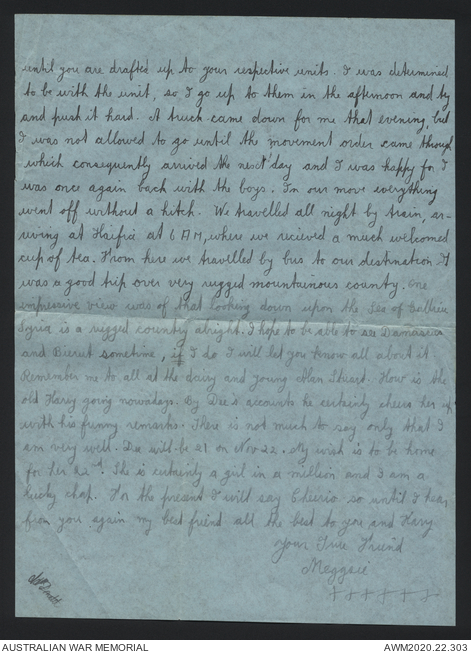 until you are drafted up to your respective units. I was determined
to be with the unit, so I go up to them in the afternoon and try
and push it hard. A truck came down for me that evening but
I was not allowed to go until the movement order came through
which consequently arrived the next day and I was happy for I
was once again back with the boys. In our move everything
went off without a hitch. We travelled all night by train, ar-
riving at Haifia at 6 AM, where we recieved a much welcomed
cup of tea. From here we travelled by bus to our destination It
was a good trip over very rugged mountainous country. One
impressive view was of that looking down upon the Sea of Gallilee
Syria is a rugged country alright. I hope to be able to see Damascus
and Bieruet sometime, if I do I will let you know all about it.
Remember me to all at the dairy and young Alan Stuart. How is the
old Harry going nowadays. By Dee's accounts he certainly cheers her up
with his funny remarks. There is not much to say only that I
am very well. Dee will be 21 on Nov 22. My wish is to be home
for her 22nd. She is certainly a girl in a million and I am a
lucky chap. For the present I will say Cheerio so until I hear
from you again my best friend all the best to you and Harry
Your True Friend
Meggsie
+ + + + + +
AUSTRALIAN WAR MEMORIAL
AWM2020.22.303